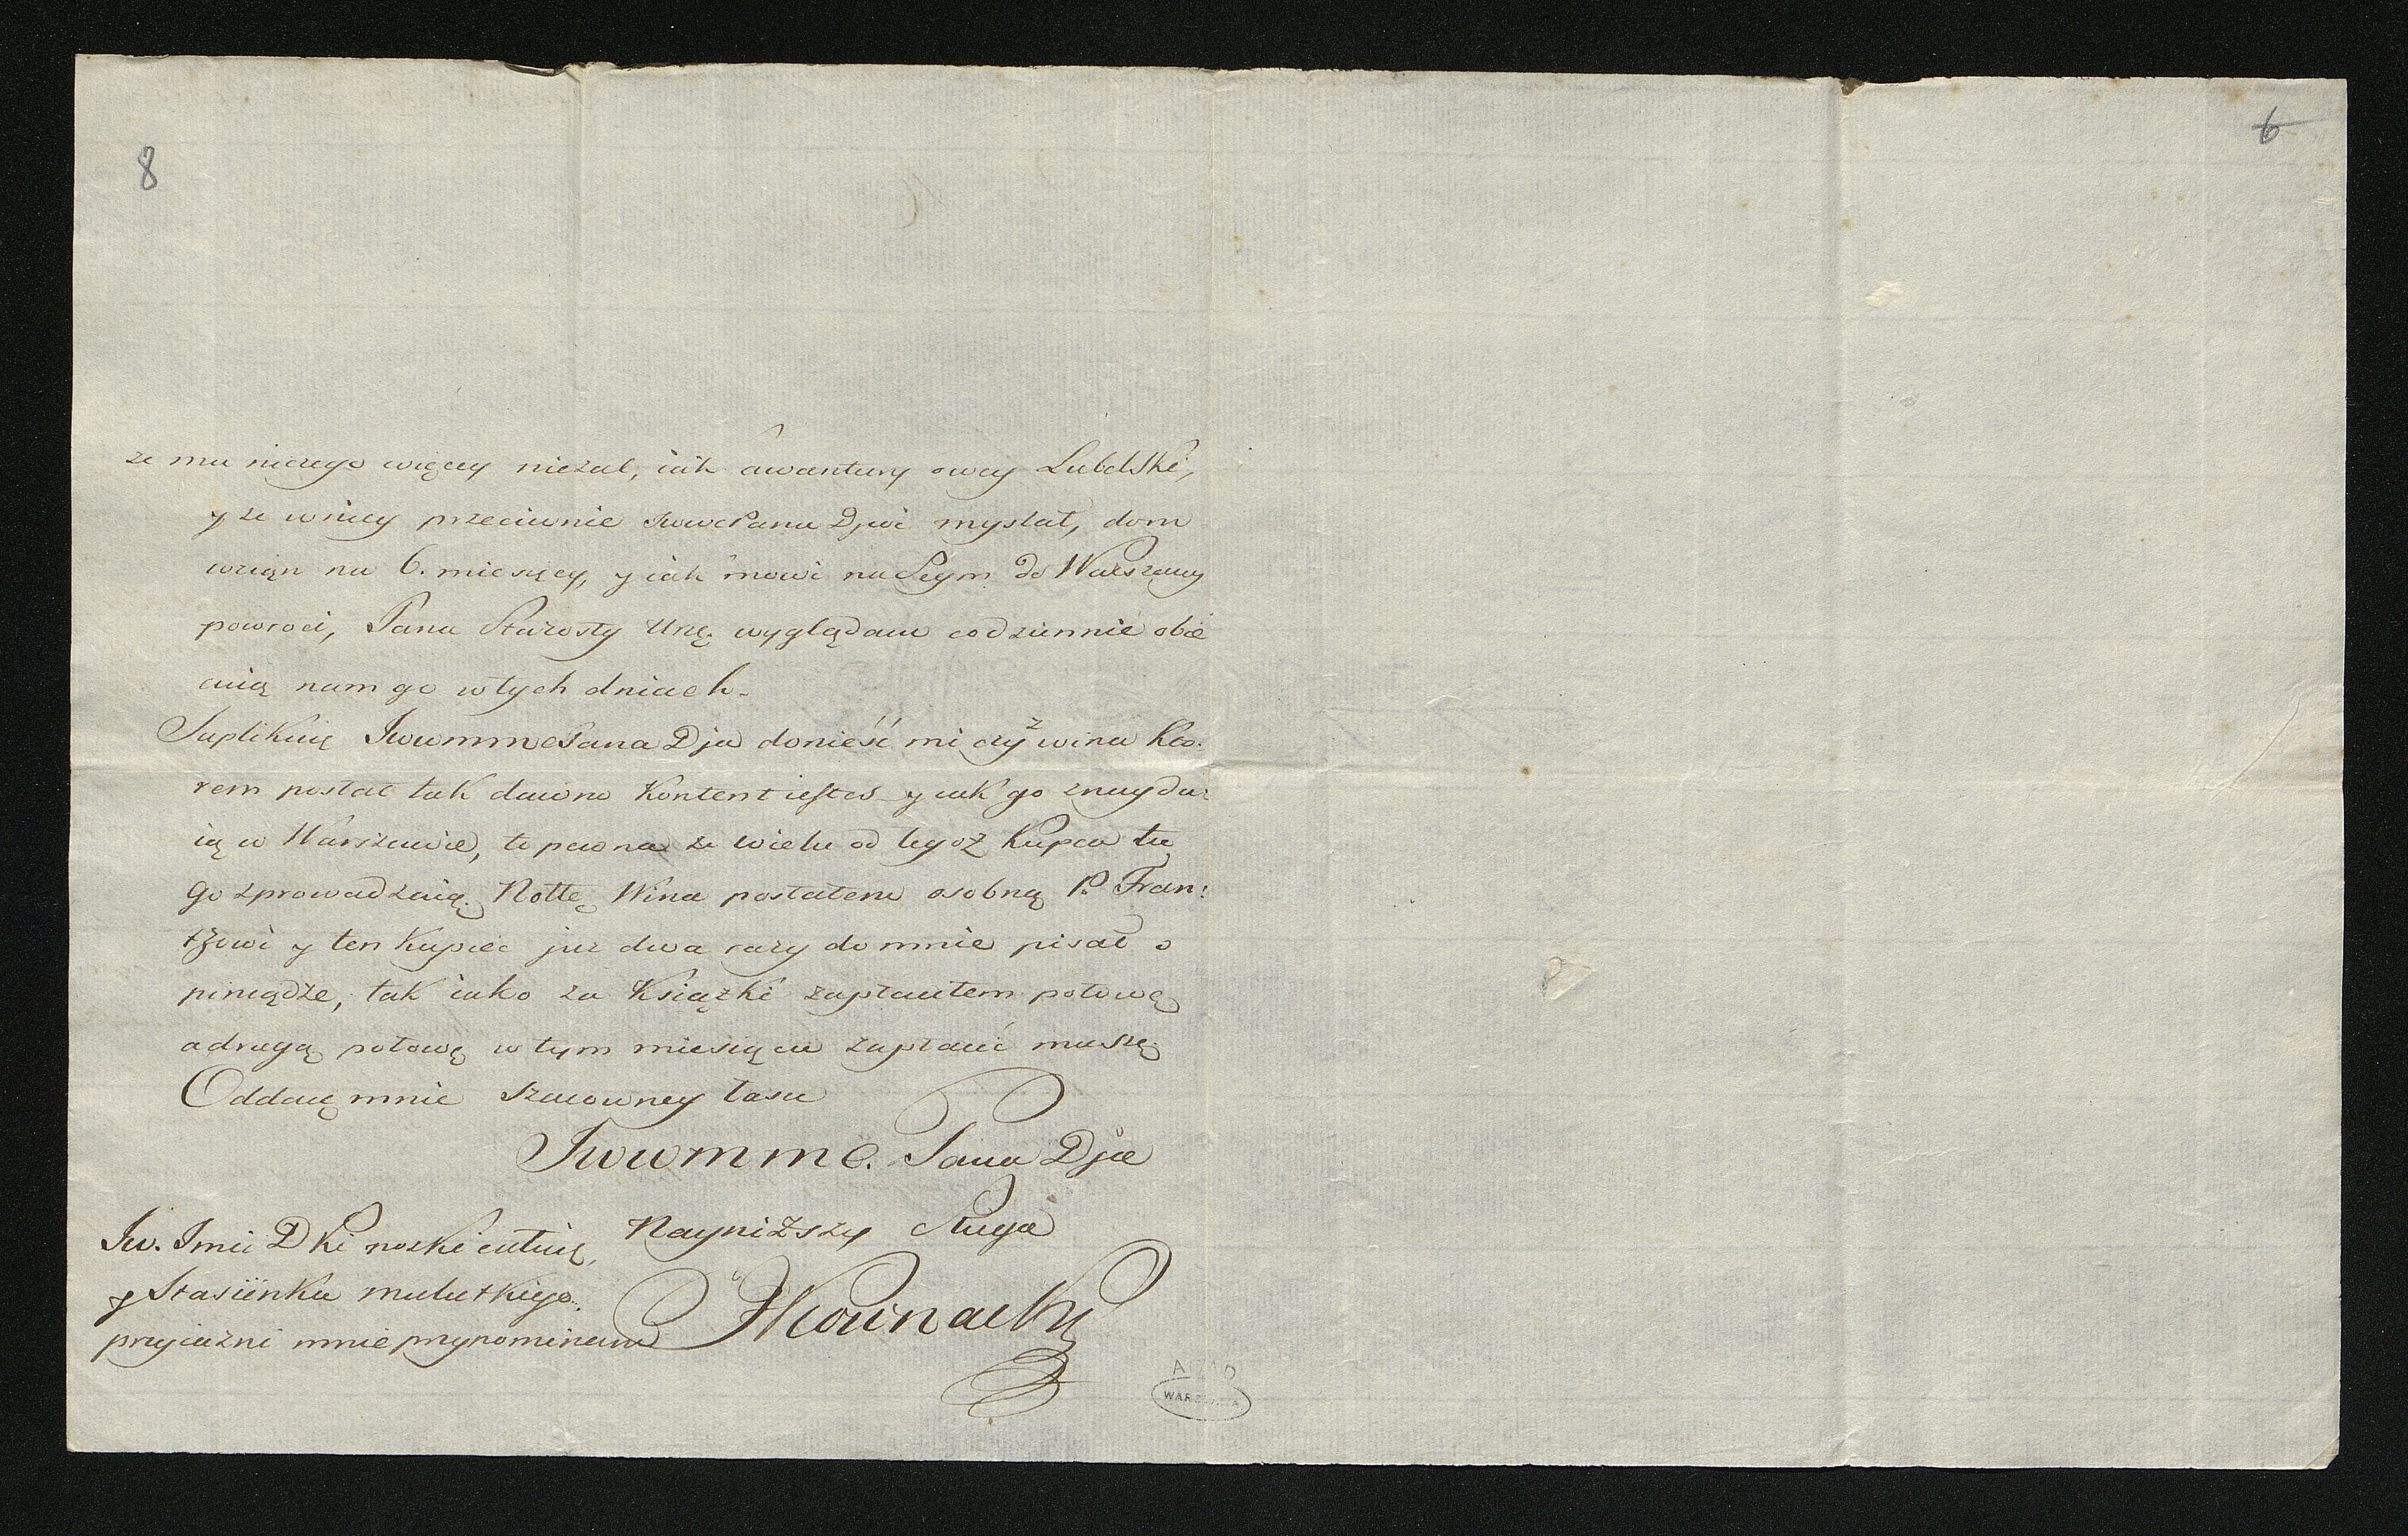 8
6
ze mu niczego więcey nieżal, iak awantury owey Lubelskĩ,
y ze wniey przeciwnie JwwcPanu Djwi myslał, dom
wziąn na 6. miesięcy, y iak mowi na Seym do Warszawy
powroci, Pana Starosty Unę. wyglądam codziennie obie
cuią nam go wtych dniach.
Suplikuię JwwmmcPana Dja donieść mi czyż wina któ.
rem posłał tak dawno kontent iesteś y iak go znaydu:
ią w Warszawie, to pewna że wiele od tegoż Kupca tu
go zprowadzaią. Nottę Wina posłałem osobną P. Fran:
tzowi y ten Kupiec juz dwa razy do mnie pisał o
pieniądze, tak iako za Ksiązki zapłaciłem połowę
a drugą połowę w tym miesiącu zapłacić muszę.
Oddaię mnie szacowney łasce
Jwwmmc. Pana Dja
Nayniższy Sługa
Jw. Jmci Dki nozki całuię,
y Stasiĩnka malutkiego
przyiazni mnie przypominam
WARSZAWA